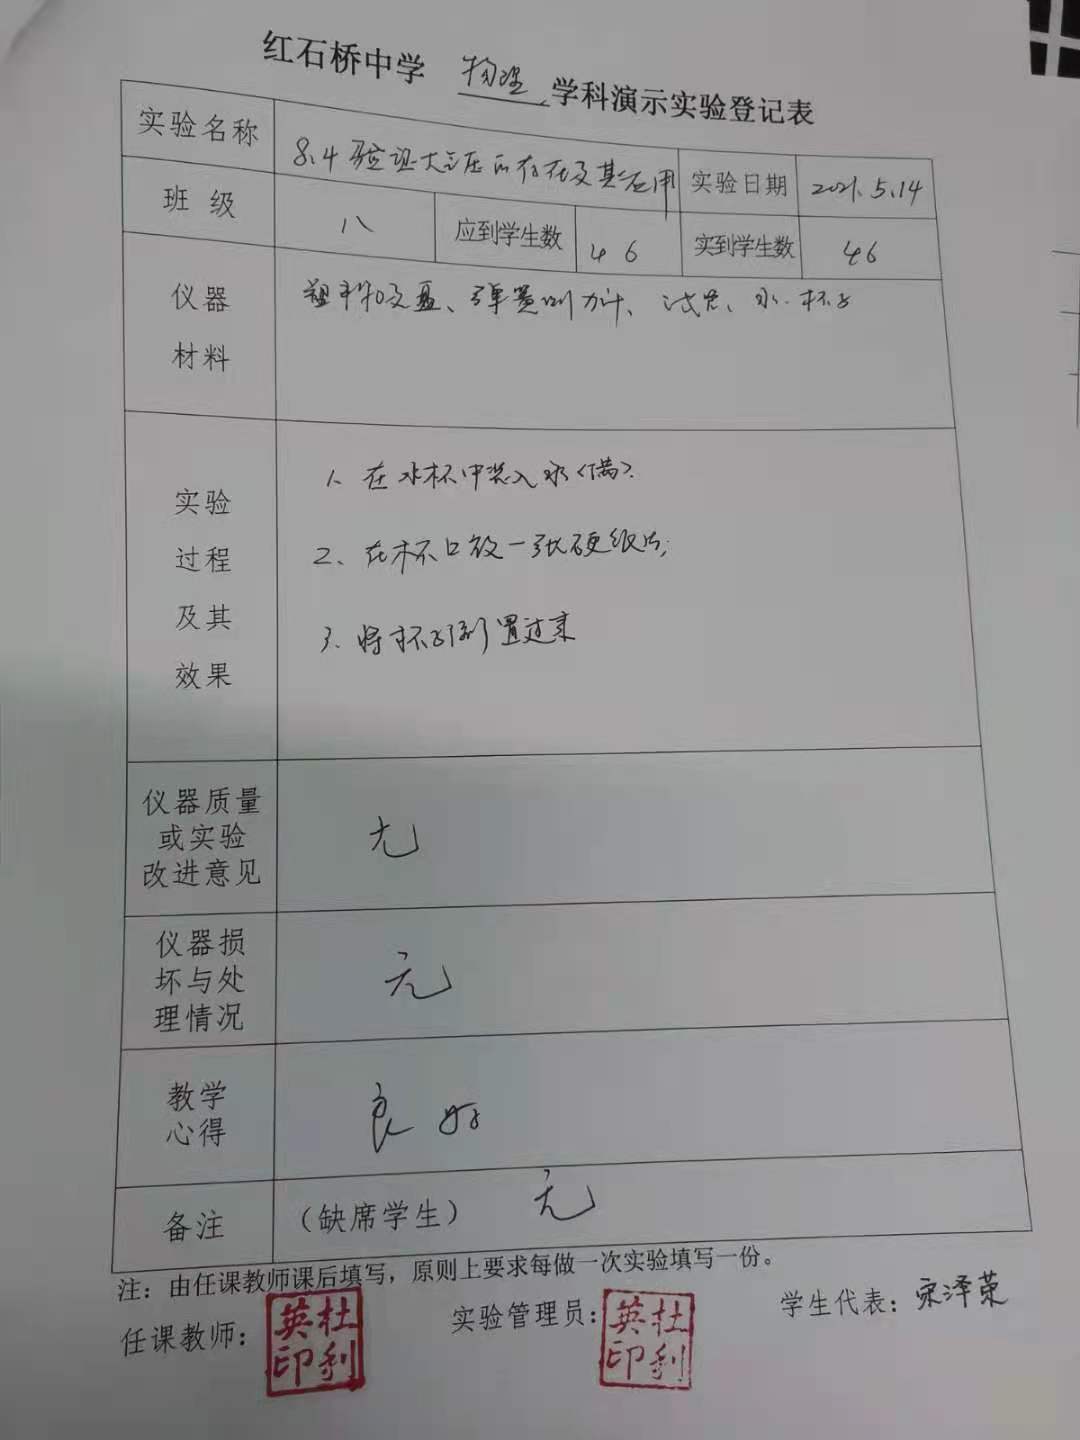 红石桥中学 物理 学科演示实验登记表
实验名称 8.4验证大气压的存在及其应用 实验日期 2021.5.14
班 级 八 应到学生数 46 实到学生数 46
仪器 塑料吸盘、弹簧测力计、试管、水.杯子
材料
1、在水杯中装入水(满).
实验
2、在杯口放一张硬纸片;
过程
及其
3、将杯子倒置过来
效果
仪器质量
或实验 无
改进意见
仪器损
坏与处 无
理情况
教学 良好
心得
备注 (缺席学生) 无
注:由任课教师课后填写,原则上要求每做一次实验填写一份。
任课教师: 杜利英印 实验管理员: 杜利英印 学生代表: 宋泽荣